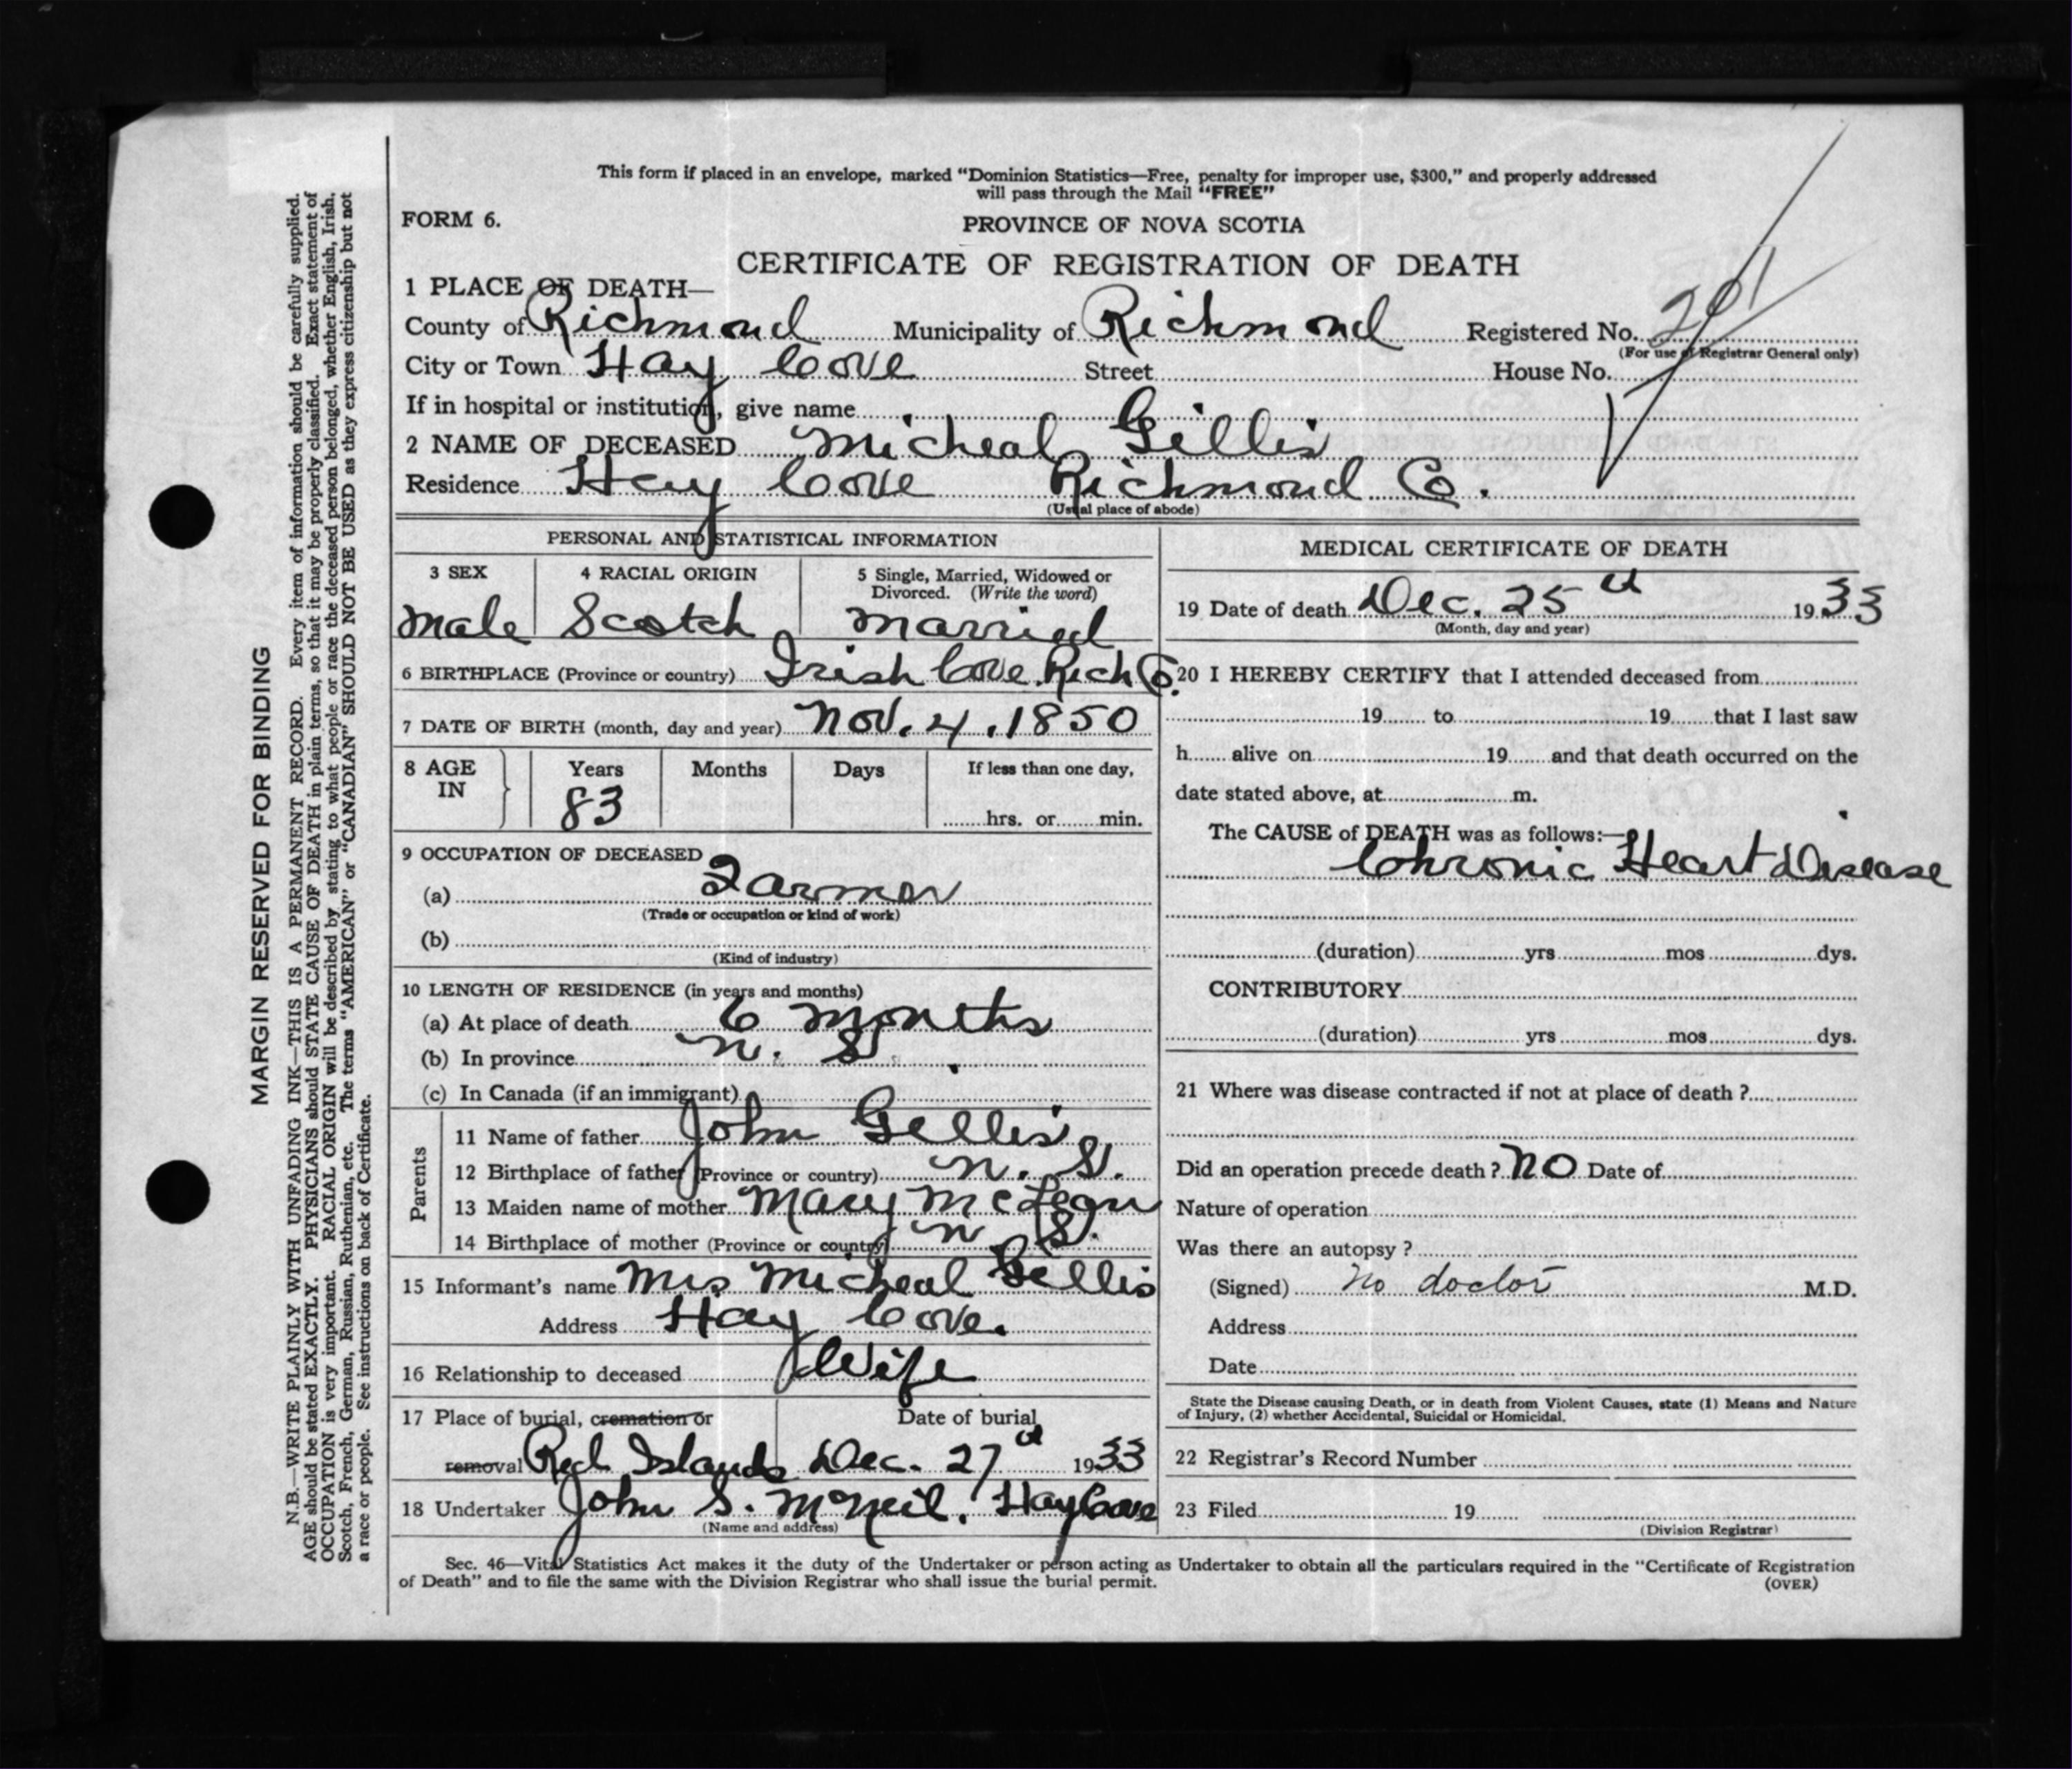 This form if placed in an envelope, marked "Dominion Statistics—Free, penalty for improper use, $300," and properly addressed
will pass through the Mail "FREE"
FORM 6.
PROVINCE OF NOVA SCOTIA
CERTIFICATE OF REGISTRATION OF DEATH
1 PLACE OF DEATH—
County of Richmond Municipality of Richmond Registered No. 201
(For use of Registrar General only)
City or Town Hay Cove Street House No.
If in hospital or institution, give name
2 NAME OF DECEASED Micheal Gillis
Residence Hay Cove Richmond Co.
(Usual place of abode)
PERSONAL AND STATISTICAL INFORMATION
3 SEX 4 RACIAL ORIGIN 5 Single, Married, Widowed or
Divorced. (Write the word)
Male Scotch Married
6 BIRTHPLACE (Province or country) Irish Cove. Rich Co.
7 DATE OF BIRTH (month, day and year) Nov. 4. 1850
8 AGE IN Years Months Days If less than one day,
83 hrs. or min.
9 OCCUPATION OF DECEASED
(a) Farmer
(Trade or occupation or kind of work)
(b)
(Kind of industry)
10 LENGTH OF RESIDENCE (in years and months)
(a) At place of death 6 months
(b) In province N. S
(c) In Canada (if an immigrant)
Parents
11 Name of father John Gillis
12 Birthplace of father (Province or country) N. S.
13 Maiden name of mother Mary McLean
14 Birthplace of mother (Province or country) N S.
15 Informant's name Mrs Micheal Gillis
Address Hay Cove.
16 Relationship to deceased Wife
17 Place of burial, cremation or Date of burial
removal Red Islands Dec. 27th 1933
18 Undertaker John S. McNeil. Hay Cove
(Name and address)
MEDICAL CERTIFICATE OF DEATH
19 Date of death Dec. 25th 1933
(Month, day and year)
20 I HEREBY CERTIFY that I attended deceased from
19 to 19 that I last saw
h alive on 19 and that death occurred on the
date stated above, at m.
The CAUSE of DEATH was as follows:—
Chronic Heart Disease
(duration) yrs mos dys.
CONTRIBUTORY
(duration) yrs mos dys.
21 Where was disease contracted if not at place of death ?
Did an operation precede death ? No Date of
Nature of operation
Was there an autopsy ?
(Signed) No doctor M.D.
Address
Date
State the Disease causing Death, or in death from Violent Causes, state (1) Means and Nature
of Injury, (2) whether Accidental, Suicidal or Homicidal.
22 Registrar's Record Number
23 Filed 19
(Division Registrar)
Sec. 46—Vital Statistics Act makes it the duty of the Undertaker or person acting as Undertaker to obtain all the particulars required in the "Certificate of Registration
of Death" and to file the same with the Division Registrar who shall issue the burial permit.
(OVER)
MARGIN RESERVED FOR BINDING
N.B.—WRITE PLAINLY WITH UNFADING INK—THIS IS A PERMANENT RECORD. Every item of information should be carefully supplied.
AGE should be stated EXACTLY. PHYSICIANS should STATE CAUSE OF DEATH in plain terms, so that it may be properly classified. Exact statement of
OCCUPATION is very important. RACIAL ORIGIN will be described by stating to what people or race the deceased person belonged, whether English, Irish,
Scotch, French, German, Russian, Ruthenian, etc. The terms "AMERICAN" or "CANADIAN" SHOULD NOT BE USED as they express citizenship but not
a race or people. See instructions on back of Certificate.